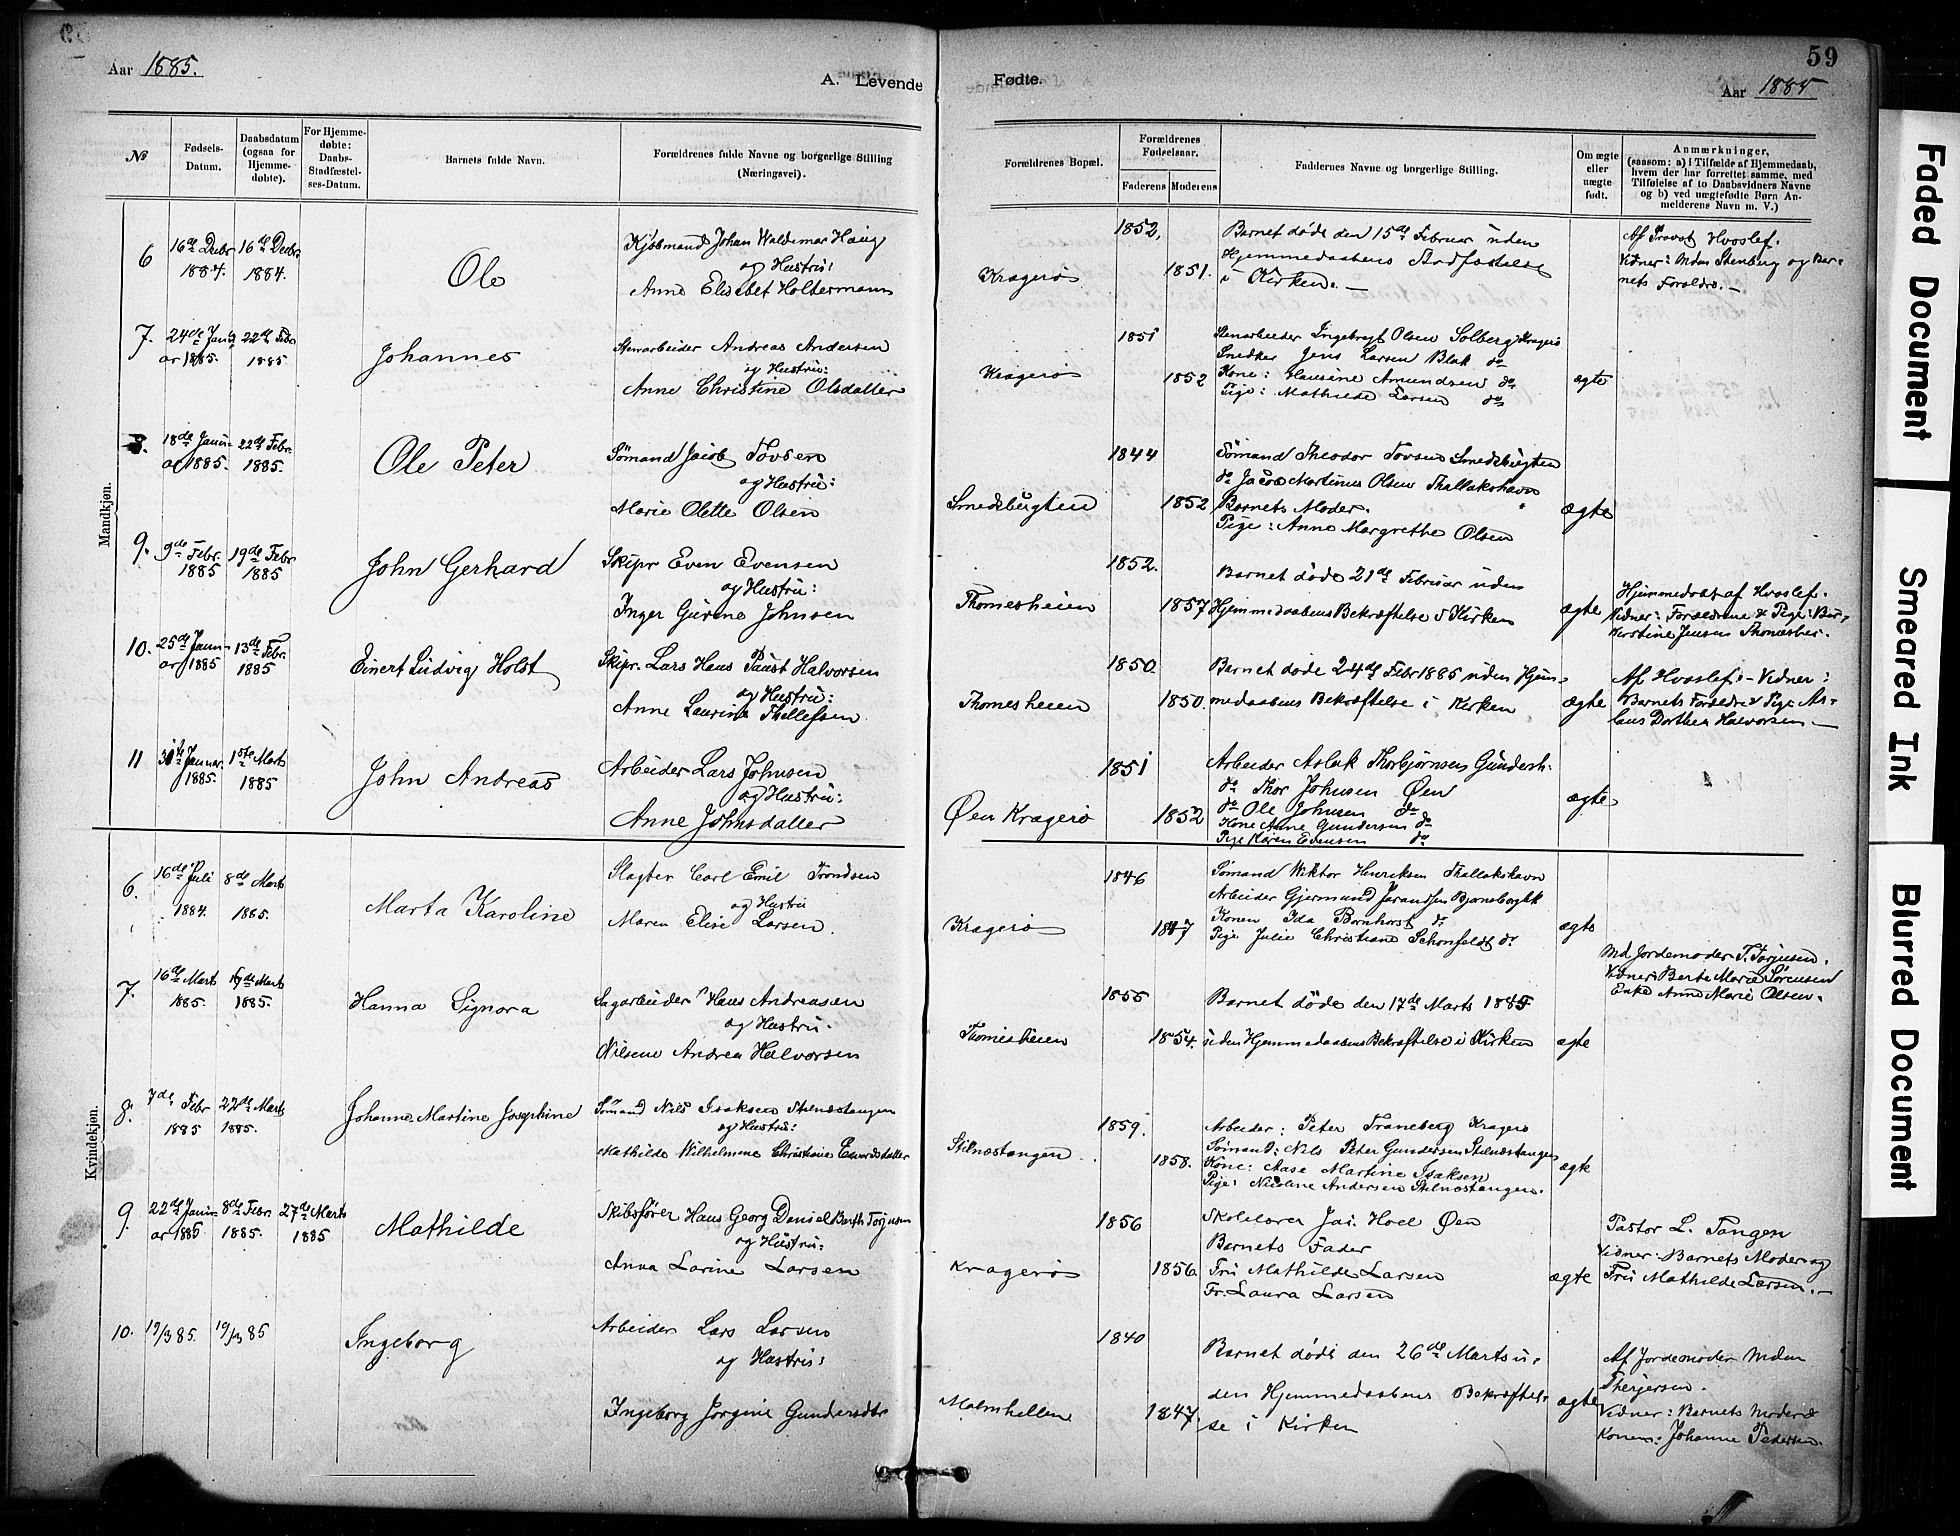 59
Aar 1885.
A. Levende Fødte.
Aar 1885
№
Fødsels-Datum.
Daabsdatum (ogsaa for Hjemme-døbte).
For Hjemme-døbte: Daabs-Stadfæstel-ses-Datum.
Barnets fulde Navn.
Forældrenes fulde Navne og borgerlige Stilling (Næringsvei).
Forældrenes Bopæl.
Forældrenes Fødselsaar.
Faderens Moderens
Faddernes Navne og borgerlige Stilling.
Om ægte eller uægte født.
Anmærkninger,
(saasom: a) i Tilfælde af Hjemmedaab,
hvem der har forrettet samme, med
Tilføielse af to Daabsvidners Navne
og b) ved uægtefødte Børn An-
melderens Navn m. V.)
Mandkjøn.
6
16de Decbr 1884.
16de Decbr. 1884.
Ole
Kjøbmand Johan Waldemar Haug
og Hustru:
Anne Elisabet Holtermann
Kragerø
1852.
1851.
Barnet døde den 15de Februar uden
Hjemmedaabens Stadfæstelse
i Kirken. —
Af Provst Hvoslef.
Vidner: Mdm Stenberg og Bar-
nets Forældre. —
7.
24de Janu
ar 1885.
22de Febr
1885
Johannes
Stenarbeider Andreas Andersen
og Hustru:
Anne Christine Olsdatter
Kragerø
1851
1852
Stenarbeider Ingebregt Olsen Solberg Kragerø
Snedker Jens Larsen Blak do
Kone: Hansine Amundsen do
Pige: Mathilde Larsen do
ægte
8.
18de Janu-
ar 1885.
22de Febr.
1885.
Ole Peter
Sømand Jacob Tovsen
og Hustru:
Marie Olette Olsen
Smedsbugten
1844
1852
Sømand Theodor Tovsen Smedsbugten
do Jacob Martinus Olsen Thallakshavn
Barnets Moder.
Pige: Anne Margrethe Olsen
ægte
9.
9de Febr.
1885
19de Febr
1885
John Gerhard
Skipr Even Evensen
og Hustru:
Inger Gurine Johnsen
Thomesheien
1852.
1857
Barnet døde 21de Februar uden
Hjemmedaabens Bekræftelse i Kirken
ægte
Hjemmedøbt af Hvoslef.
Vidner: Forældrene & Pige:
Kirstine Jensen Thomeshei.
10.
25de Janu-
ar 1885
13de Febr.
1885
Einert Ludvig Holst
Skipr. Lars Hans Paust Halvorsen
og Hustru:
Anne Laurine Thellefsen
Thomesheien
1850.
1850.
Barnet døde 24de Febr 1885 uden Hjem-
medaabens Bekræftelse i Kirken
ægte
Af Hvoslef – Vidner:
Barnets Forældre & Pige As-
laus Dorthea Halvorsen. —
11
31te Januar
1885.
1ste Marts
1885
John Andreas
Arbeider Lars Johnsen
og Hustru:
Anne Johnsdatter
Øen Kragerø
1851
1852
Arbeider Aslak Thorbjørnsen Gundersh.
do Thor Johnsen Øen
do Ole Johnsen do
Kone Anne Gundersen do
Pige Karen Evensen do
ægte
Kvindekjøn.
6.
16de Juli
1884.
8de Marts
1885.
Marta Karoline
Slagter Carl Emil Trondsen
og Hustru
Maren Elise Larsen.
Kragerø
1846
1847
Sømand Wiktor Henriksen Thallakshavn
Arbeider Gjermund
Konen Ida Bornhorst do
Pige Julie Christiane Schonfeldt do
ægte
7.
16de Marts
1885.
Marts
1885.
Hanna Signora
Sagarbeider Hans Andreasen
og Hustru.
Nilsine Andrea Halvorsen
Thomesheien
1855
1854.
Barnet døde den 17de Marts 1885
uden Hjemmedaabens Bekræftelse i Kirken
ægte
Md Jordemoder T. Torjusen.
Vidner: Berte Marie Sørensen
Enke Anne Marie Olsen.
8.
7de Febr
1885
22de Marts
1885.
Johanne Martine Josephine
Sømand Nils Isaksen Stilnestangen
og Hustru:
Mathilde Wilhelmine Christiane Ewardsdatter
Stilnestangen
1859.
1858.
Arbeider: Peter Traneberg Kragerø
Sømand: Nils Peter Gundersen Stilnestangen
Kone: Aase Martine Isaksen
Pige: Nicoline Andersen Stilnestangen.
ægte
9.
22de Janu-
ar 1885
8de Febr
1885.
27de Marts
1885
Mathilde
Skibsfører Hans Georg Daniel Barth Torjusen
og Hustru:
Anna Larine Larsen
Kragerø
1856
1856.
Skolelærer Jac. Hoel Øen
Barnets Fader
Fru Mathilde Larsen
Fr. Laura Larsen
ægte
Pastor L. Tangen
Vidner: Barnets Moder og
Fru Mathilde Larsen. —
10.
19/3 85.
19/3 85
Ingeborg
Arbeider Lars Larsen
og Hustru:
Ingeborg Jørgine Gundersdtr
Malmhellen
1840
1847.
Barnet døde den 26de Marts u-
den Hjemmedaabens Bekræftel-
se i Kirken
ægte
Af Jordemoder Mdm
Therjersen.
Vidner: Barnets Moder &
Konen: Johanne Pedersen.
Faded Document
Smeared Ink
Blurred Document